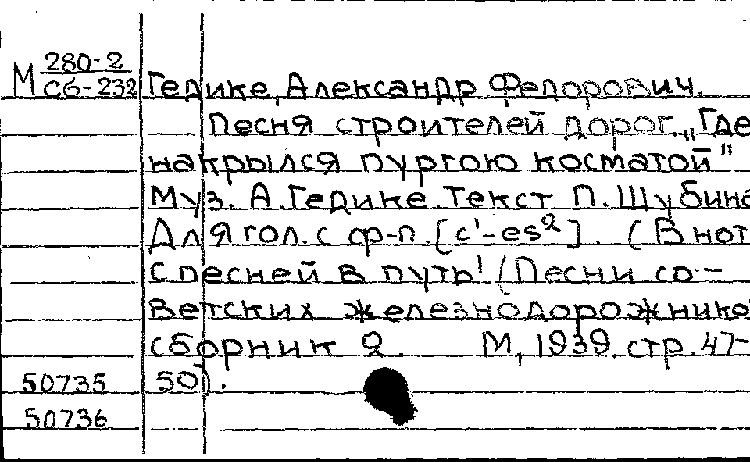 М 280-2
Сб-232
Гедике, Александр Федорович.
Песня строителей дорог. „Где
накрылся пургою косматой"
Муз. А. Гедике. Текст П. Шубина
Для гол. с ф-п. [c¹-es²]. (В нот
С песней в путь! (Песни со-
ветских железнодорожнико
сборник 2. М, 1939. стр. 47-
50).
50735
50736